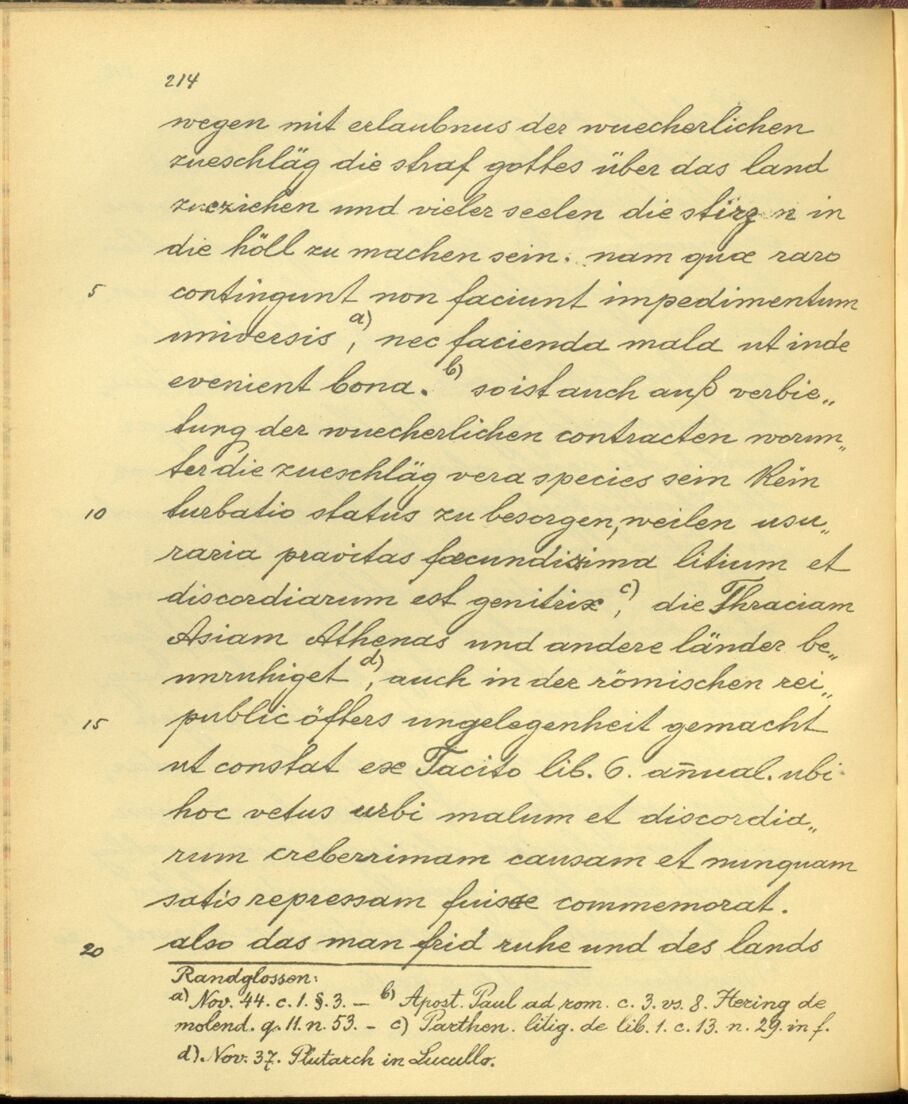 214
wegen mit erlaubnus der wuecherlichen
zueschläg die straf gottes über das land
zueziehen und vieler seelen die stirzen in
die höll zu machen sein. nam quæ raro
5 contingunt non faciunt impedimentum
universis a), nec facienda mala ut inde
evenient bona. b) so ist auch auß verbie„
tung der wuecherlichen contracten worun„
ter die zueschläg vera species sein kein
10 turbatio status zu besorgen, weilen usu„
raria pravitas fæcundissima litium et
discordiarum est genitrix c), die Thraciam
Asiam Athenas und andere länder be„
unruhiget d), auch in der römischen rei„
15 public öfters ungelegenheit gemacht
ut constat ex Tacito lib. 6. añual. ubi
hoc vetus urbi malum et discordia„
rum creberrimam causam et nunquam
satis repressam fuisse commemorat.
20 also das man frid ruhe und des lands
Randglossen:
a) Nov. 44. c. 1. §. 3. – b) Apost. Paul ad rom. c. 3. vs. 8. Hering de
molend. q. 11. n. 53. – c) Parthen. litig. de lib. 1. c. 13. n. 29. in f.
d). Nov. 37. Plutarch in Lucullo.